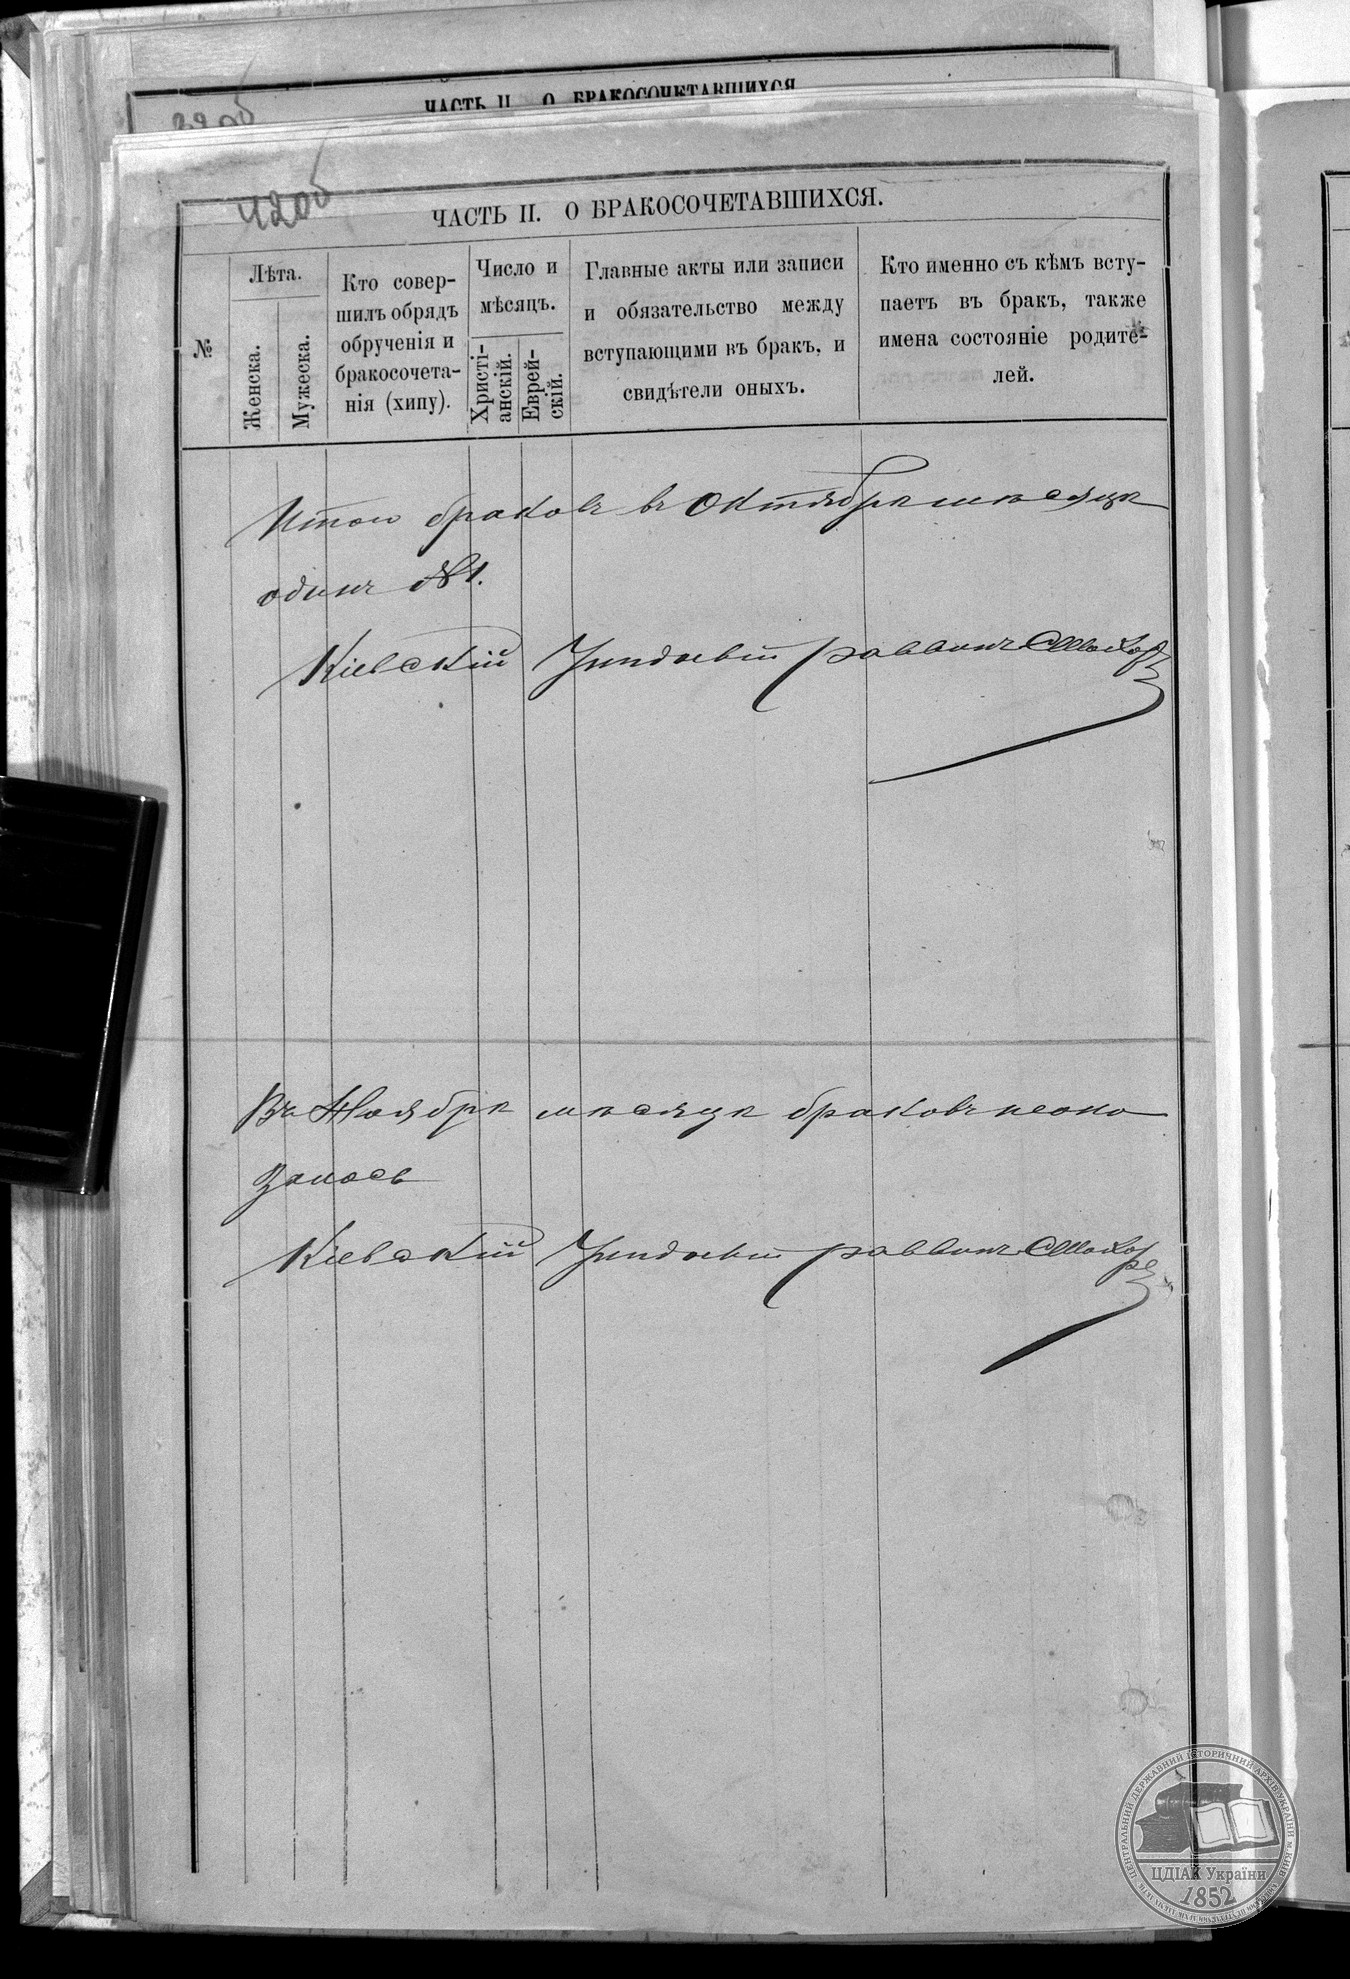 ЧАСТЬ II. О БРАКОСОЧЕТАВШИХСЯ
42об
ЧАСТЬ II. О БРАКОСОЧЕТАВШИХСЯ.
№
Лѣта.
Женска.
Мужеска.
Кто совер-
шилъ обрядъ
обрученія и
бракосочета-
нія (хипу).
Число и
мѣсяцъ.
Христі-
анскій.
Еврей-
скій.
Главные акты или записи
и обязательство между
вступающими въ бракъ, и
свидѣтели оныхъ.
Кто именно съ кѣмъ всту-
паетъ въ бракъ, также
имена состояніе родите-
лей.
браковъ въ Октябрѣ мѣсяцѣ
одинъ №1.
Кіевскій раввинъ
Въ Ноябрѣ мѣсяцѣ браковъ неока
залось
Кіевскій раввинъ
ЦЕНТРАЛЬНИЙ ДЕРЖАВНИЙ ІСТОРИЧНИЙ АРХІВ УКРАЇНИ М. КИЇВ
ЦДІАК України
1852